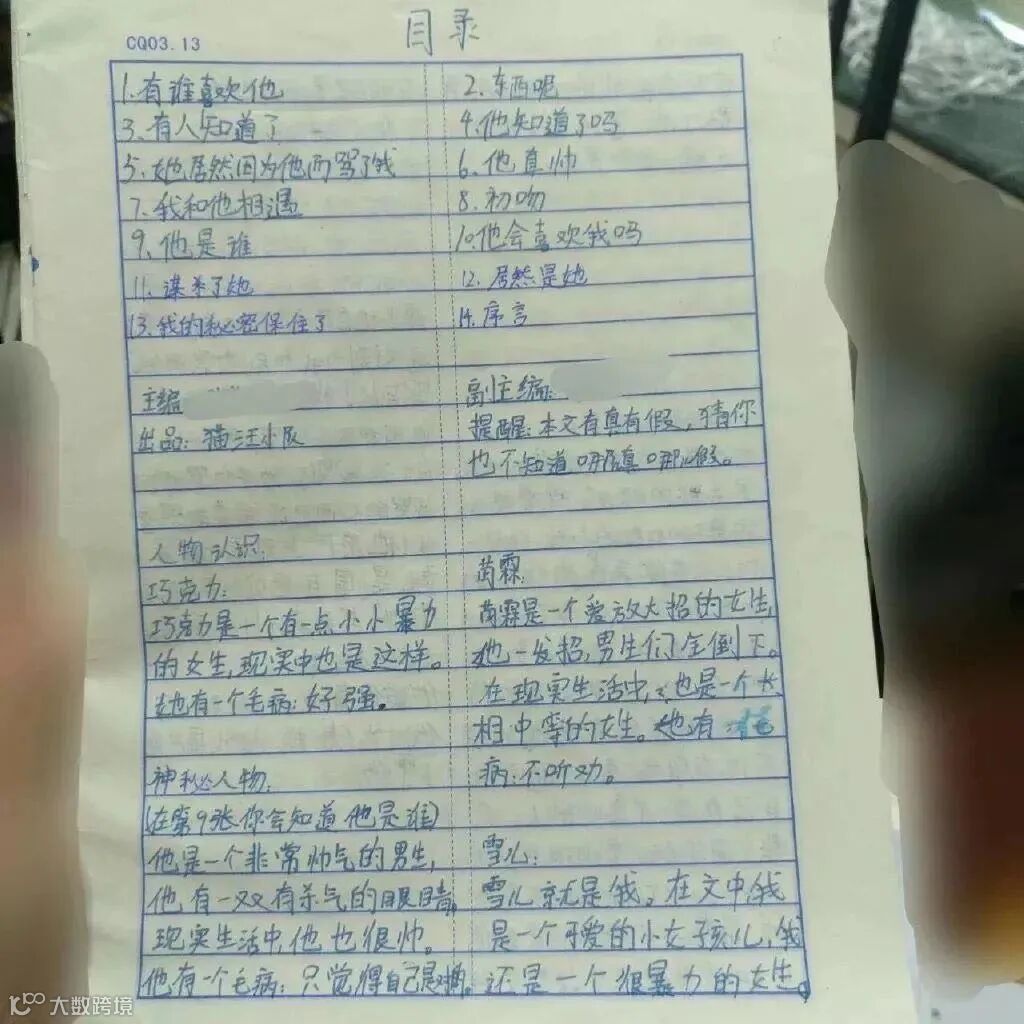 CQ03.13
目录
1.有谁喜欢他
2.东西呢
3.有人知道了
4.他知道了吗
5.她居然因为他而骂了我
6.他真帅
7.我和他相遇
8.初吻
9.他是谁
10.他会喜欢我吗
11.谋杀了她
12.居然是她
13.我的秘密保住了
14.序言
主编
副主编:
出品:猫汪小队
提醒:本文有真有假,猜你
也不知道哪真哪假。
人物认识:
巧克力:
巧克力是一个有一点小小暴力
的女生,现实中也是这样。
她有一个毛病:好强。
茵霖:
茵霖是一个爱放大招的女生,
她一发招,男生们全倒下。
在现实生活中,也是一个长
相中等的女生。她有毛
病:不听劝。
神秘人物:
(在第9张你会知道他是谁)
他是一个非常帅气的男生,
他有一双有杀气的眼睛,
现实生活中他也很帅。
他有一个毛病:只觉得自己是对的。
雪儿:
雪儿就是我,在文中,我
是一个可爱的小女孩儿,我
还是一个很暴力的女生。
大数跨境